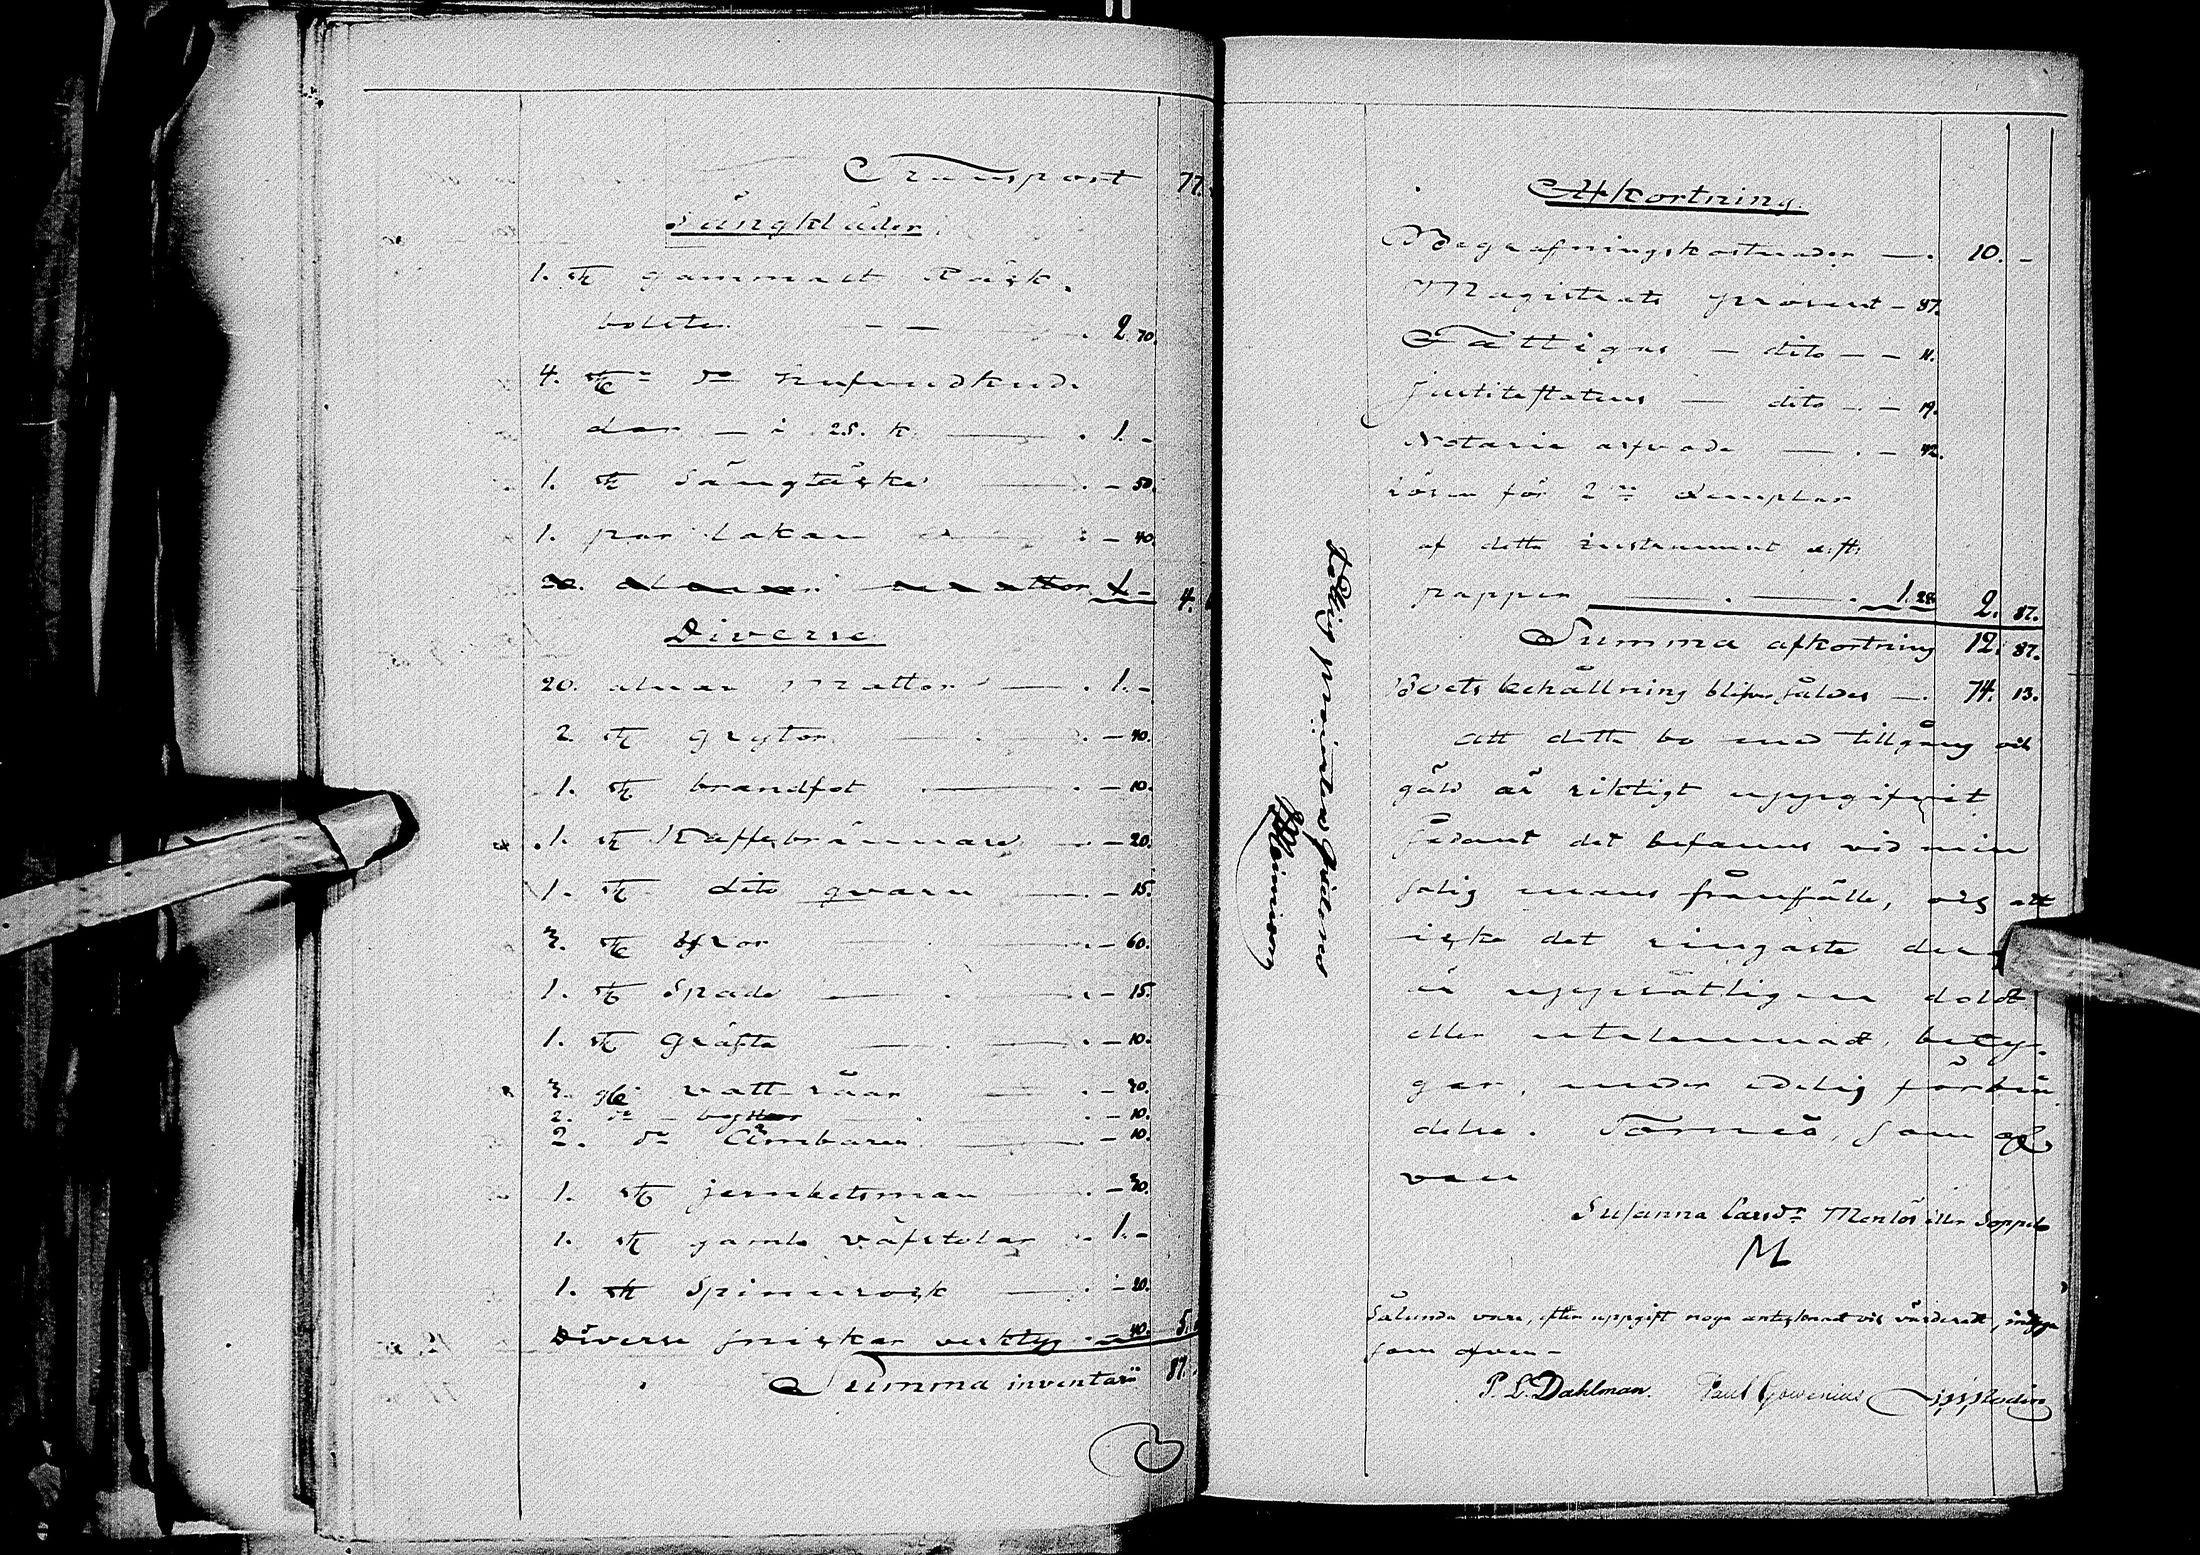 Transport 77.
Sängkläder.
1. st gammalt Rask-
bolster - - 2.70.
4. st:r d:o hufvudkud-
dar - i 25. k. - 1. -
1. st Sängtäcke - 50.
1. par Lakan - 40.
4.
Diverse
20. alnar Mattor - 1. -
2. st grytor - 40.
1. st brandfot - 10.
1. st Kaffebrännare - 20.
1. st dito qvarn - 15.
3. st yxor - 60.
1. st Spade - 15.
1. st gräfta - 10.
3. vatt-såar - 30.
2. d:o byttor - 10.
2. d:o Ämbaren - 10.
1. st jernketsman - 30.
1. st gamla väfstolar - 1. -
1. st Spinnrock - 20.
Diverse fniskar verktyg - 40. 5.
Summa inventarii 87.
Afkortning.
Begrafningskostnader - 10. -
Magistrats procent - 87.
Fattigas - dito - - 11.
Justitestatens - dito - - 19.
Notarie arfvode - - 42.
Lösen för 2:ne Exemplar
af detta instrument
papper - 1.28 2. 87.
Summa afkortning 12. 87.
Boets behållning blifver således - 74. 13.
Att detta bo med tillgång och
gäld är riktigt uppgifvit
sådant det befanns vid min
salig mans frånfälle, och att
icke det ringaste der
är uppsåtligen doldt
eller utelemnadt, bety-
gar, under edelig förbin-
delse. Torneå, som of-
van
Susanna Larsd:r Menlös eller Soppela
M
Sålunda vara, efter uppgift noga antecknadt och värderadt, intyga
som ofvan -
P. L. Dahlman. Paul Govenius
Fattig procenten qvitteras